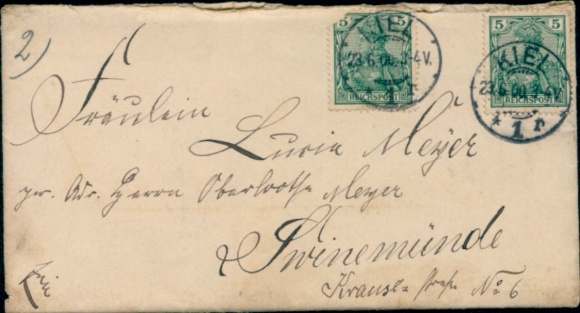 2)
5 5
REICHSPOST
KIEL
23.6.00. 3-4V.
* 1 r
5 5
REICHSPOST
KIEL
23.6.00. 3-4V.
* 1 r
Fräulein
Lucia Meyer
pr. Adr. Herrn Oberlootse Meyer
Swinemünde
No 6